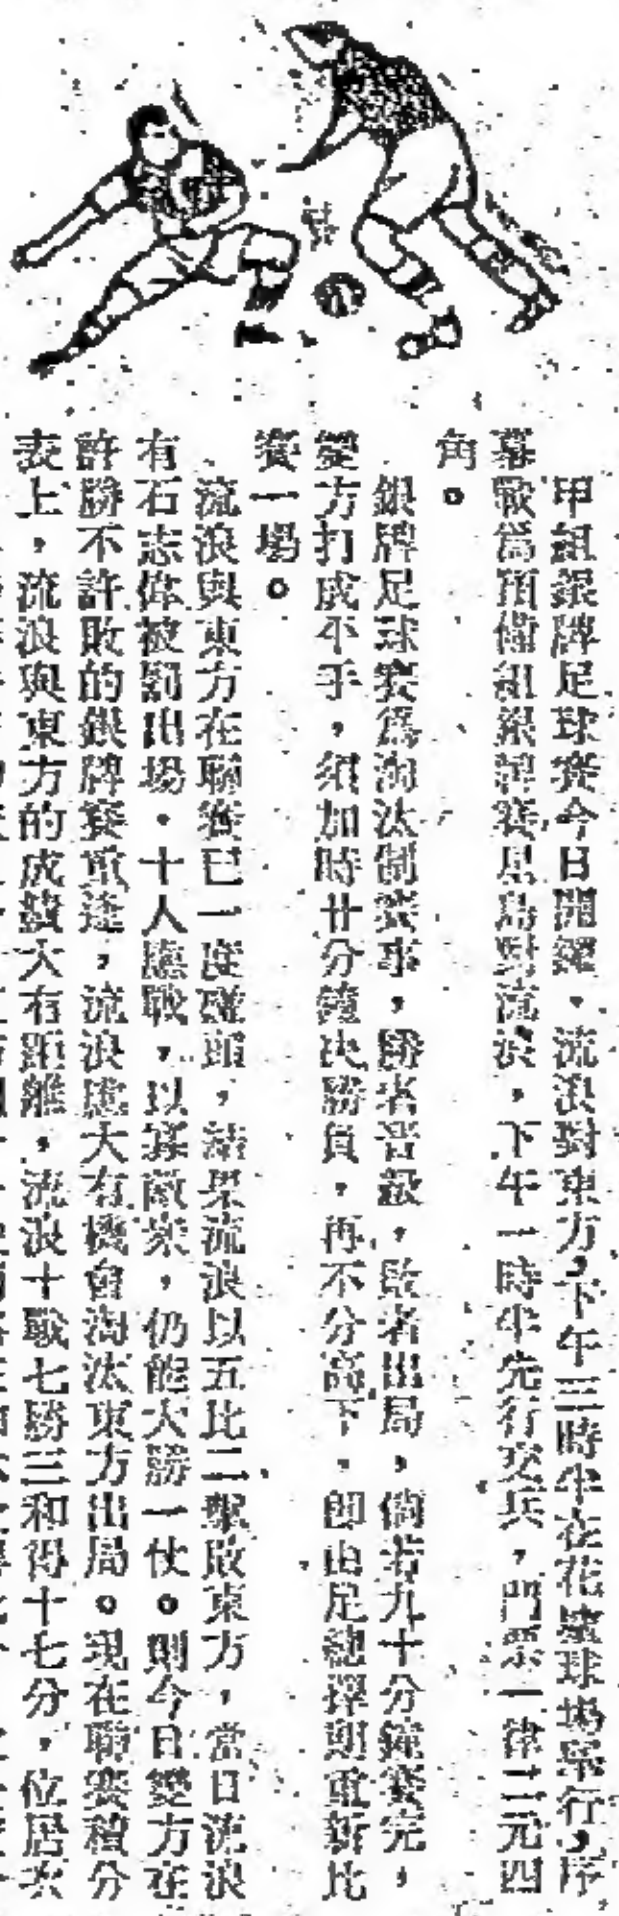 甲組銀牌足球賽今日開鑼,流浪對東方,下午三時半在花墟球塲舉行,序
幕戰爲預備組銀牌賽星島對流浪,下午一時半先行交兵,門票一律二元四
角。
銀牌足球賽爲淘汰制賽事,勝者晋級,敗者出局,倘若九十分鐘賽完,
雙方打成不手,須加時廿分鐘决勝負,再不分高下,卽由足總擇期重新比
賽一塲。
流浪與東方在聯賽已一度碰頭,結果流浪以五比二擊敗東方,當日流浪
有石志偉被罰出場,十人應戰,以寡敵衆,仍能大勝一仗。則今日雙方在
許勝不許敗的銀牌賽重逢,流浪應大有機會淘汰東方出局。現在聯賽積分
表上,流浪與東方的成績大有距離,流浪十戰七勝三和得十七分,位居次